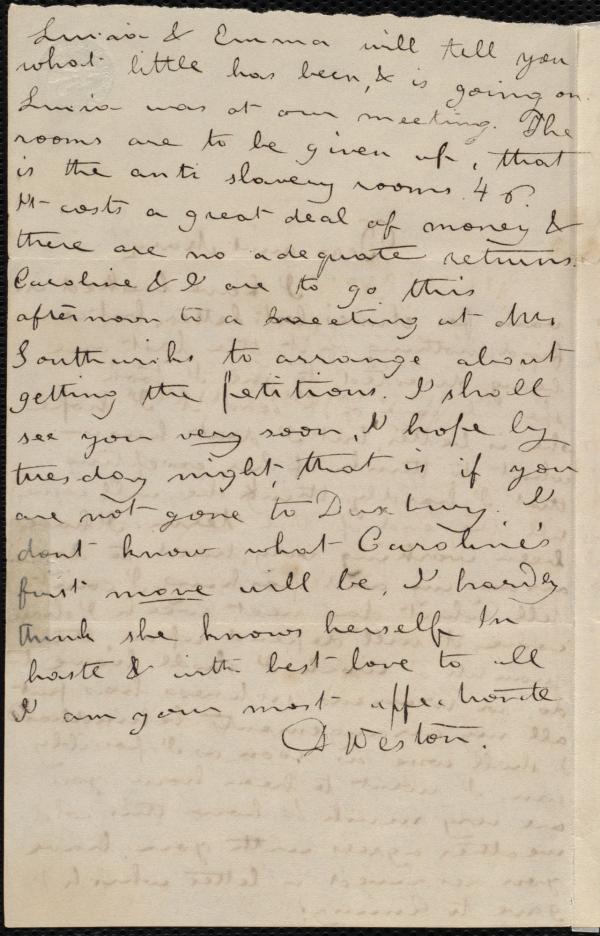 Lucia & Emma will tell you
what little has been, & is going on.
Lucia was at our meeting. The
rooms are to be given up, that
is the anti slavery rooms. 46.
It costs a great deal of money &
there are no adequate returns.
Caroline & I are to go this
afternoon to a meeting at Mrs
Southwicks to arrange about
getting the petitions. I shall
see you very soon, I hope by
tuesday night, that is if you
are not gone to Duxbury. I
dont know what Caroline's
first move will be, I hardly
think she knows herself In
haste & with best love to all
I am your most affectionate
D Weston.